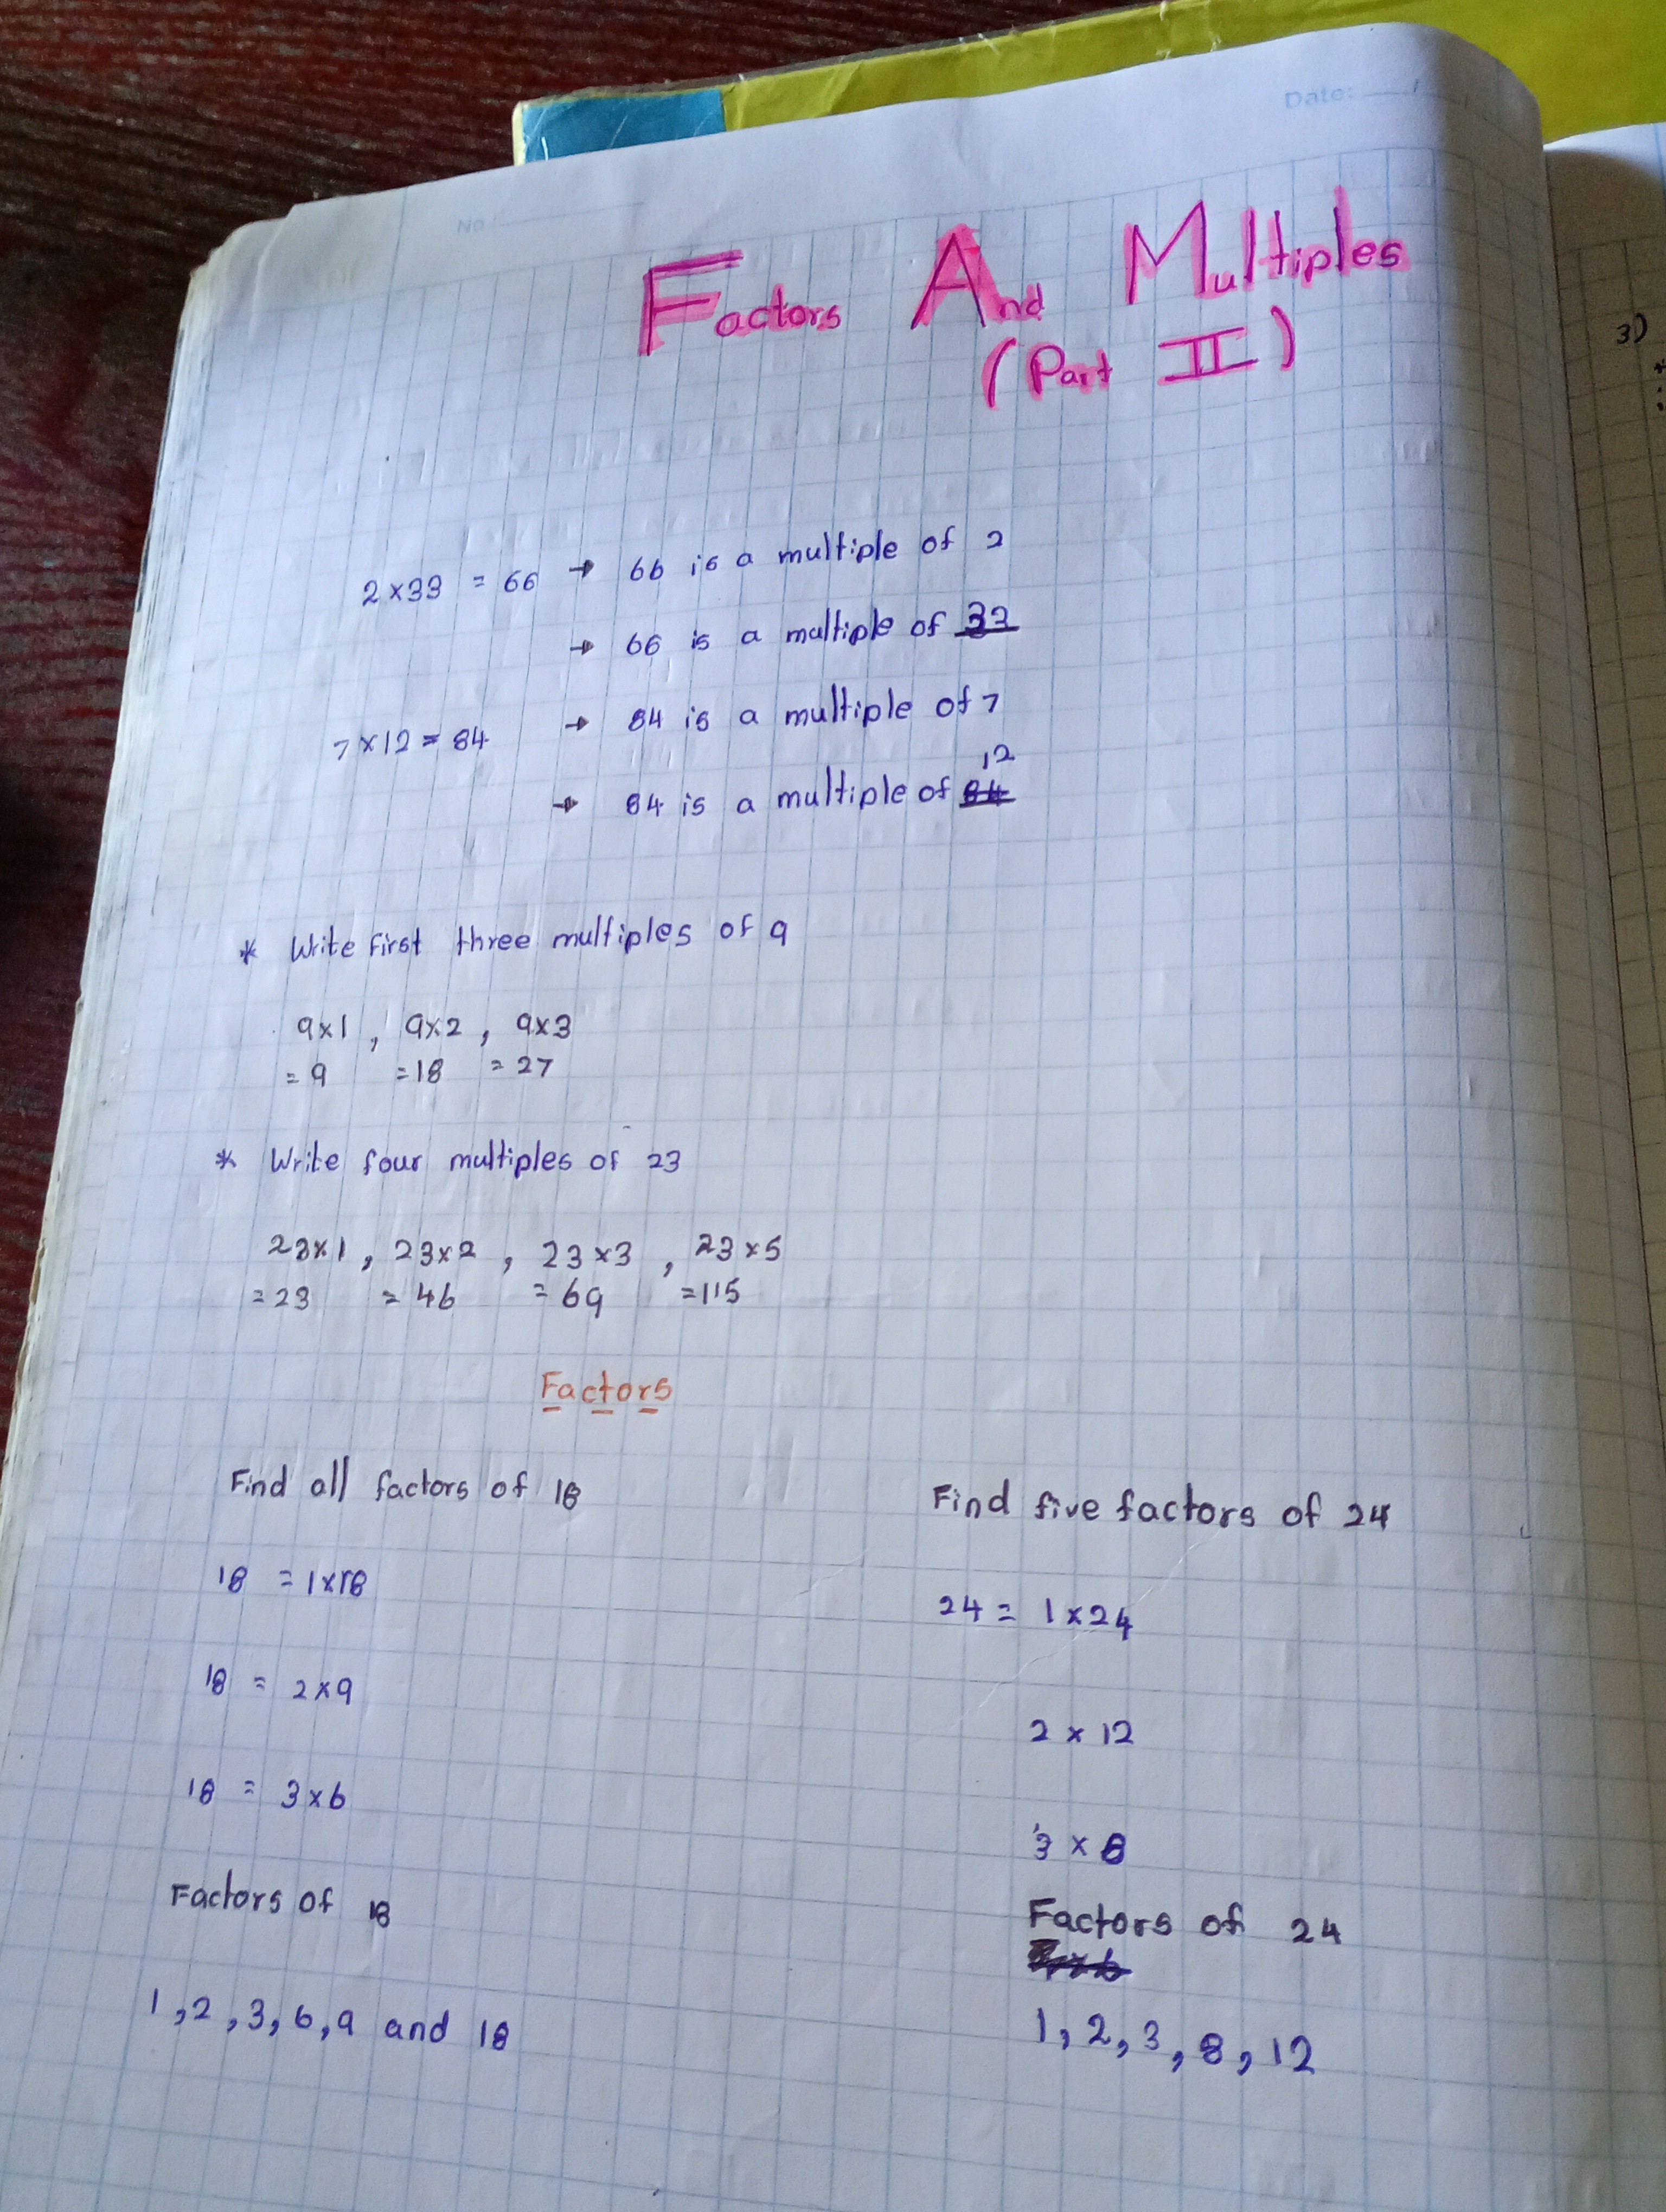 Date:
No:
Factors And Multiples
(Part II)
3)
2 x 33 = 66 → 66 is a multiple of 2
→ 66 is a multiple of 33
7 x 12 = 84 → 84 is a multiple of 7
12
→ 84 is a multiple of 84
* Write first three multiples of 9
9x1 , 9x2 , 9x3
= 9 = 18 = 27
* Write four multiples of 23
23x1 , 23x2 , 23x3 , 23x5
= 23 = 46 = 69 = 115
Factors
Find all factors of 18
18 = 1x18
18 = 2x9
18 = 3x6
Factors of 18
1, 2, 3, 6, 9 and 18
Find five factors of 24
24 = 1 x 24
2 x 12
3 x 8
Factors of 24
1, 2, 3, 8, 12